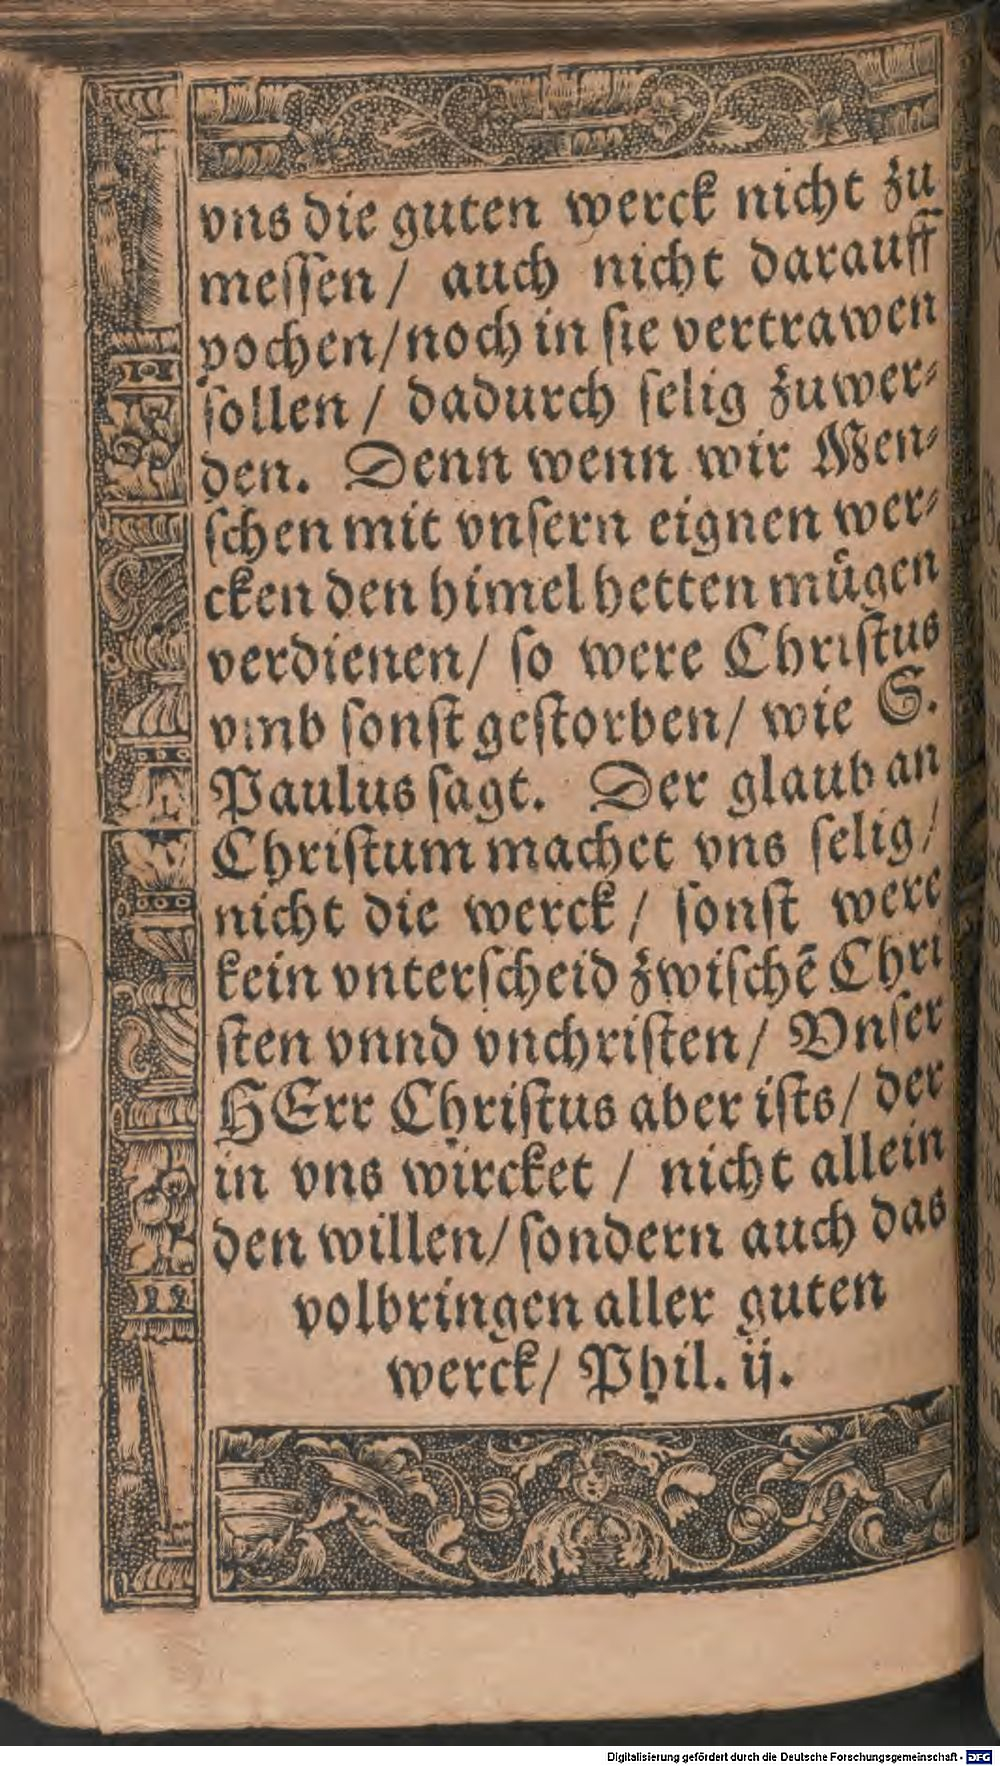 vns die guten werck nicht zu
messen / auch nicht darauff
pochen / noch in sie vertrawen
sollen / dadurch selig zuwer⸗
den. Denn wenn wir Men⸗
schen mit vnsern eignen wer⸗
cken den himel hetten mügen
verdienen / so were Christus
vmb sonst gestorben / wie S.
Paulus sagt. Der glaub an
Christum machet vns selig /
nicht die werck / sonst were
kein vnterscheid zwischē Chri
sten vnnd vnchristen / Vnser
HErr Christus aber ists / der
in vns wircket / nicht allein
den willen / sondern auch das
volbringen aller guten
werck / Phil. ij.
Digitalisierung gefördert durch die Deutsche Forschungsgemeinschaft - DFG